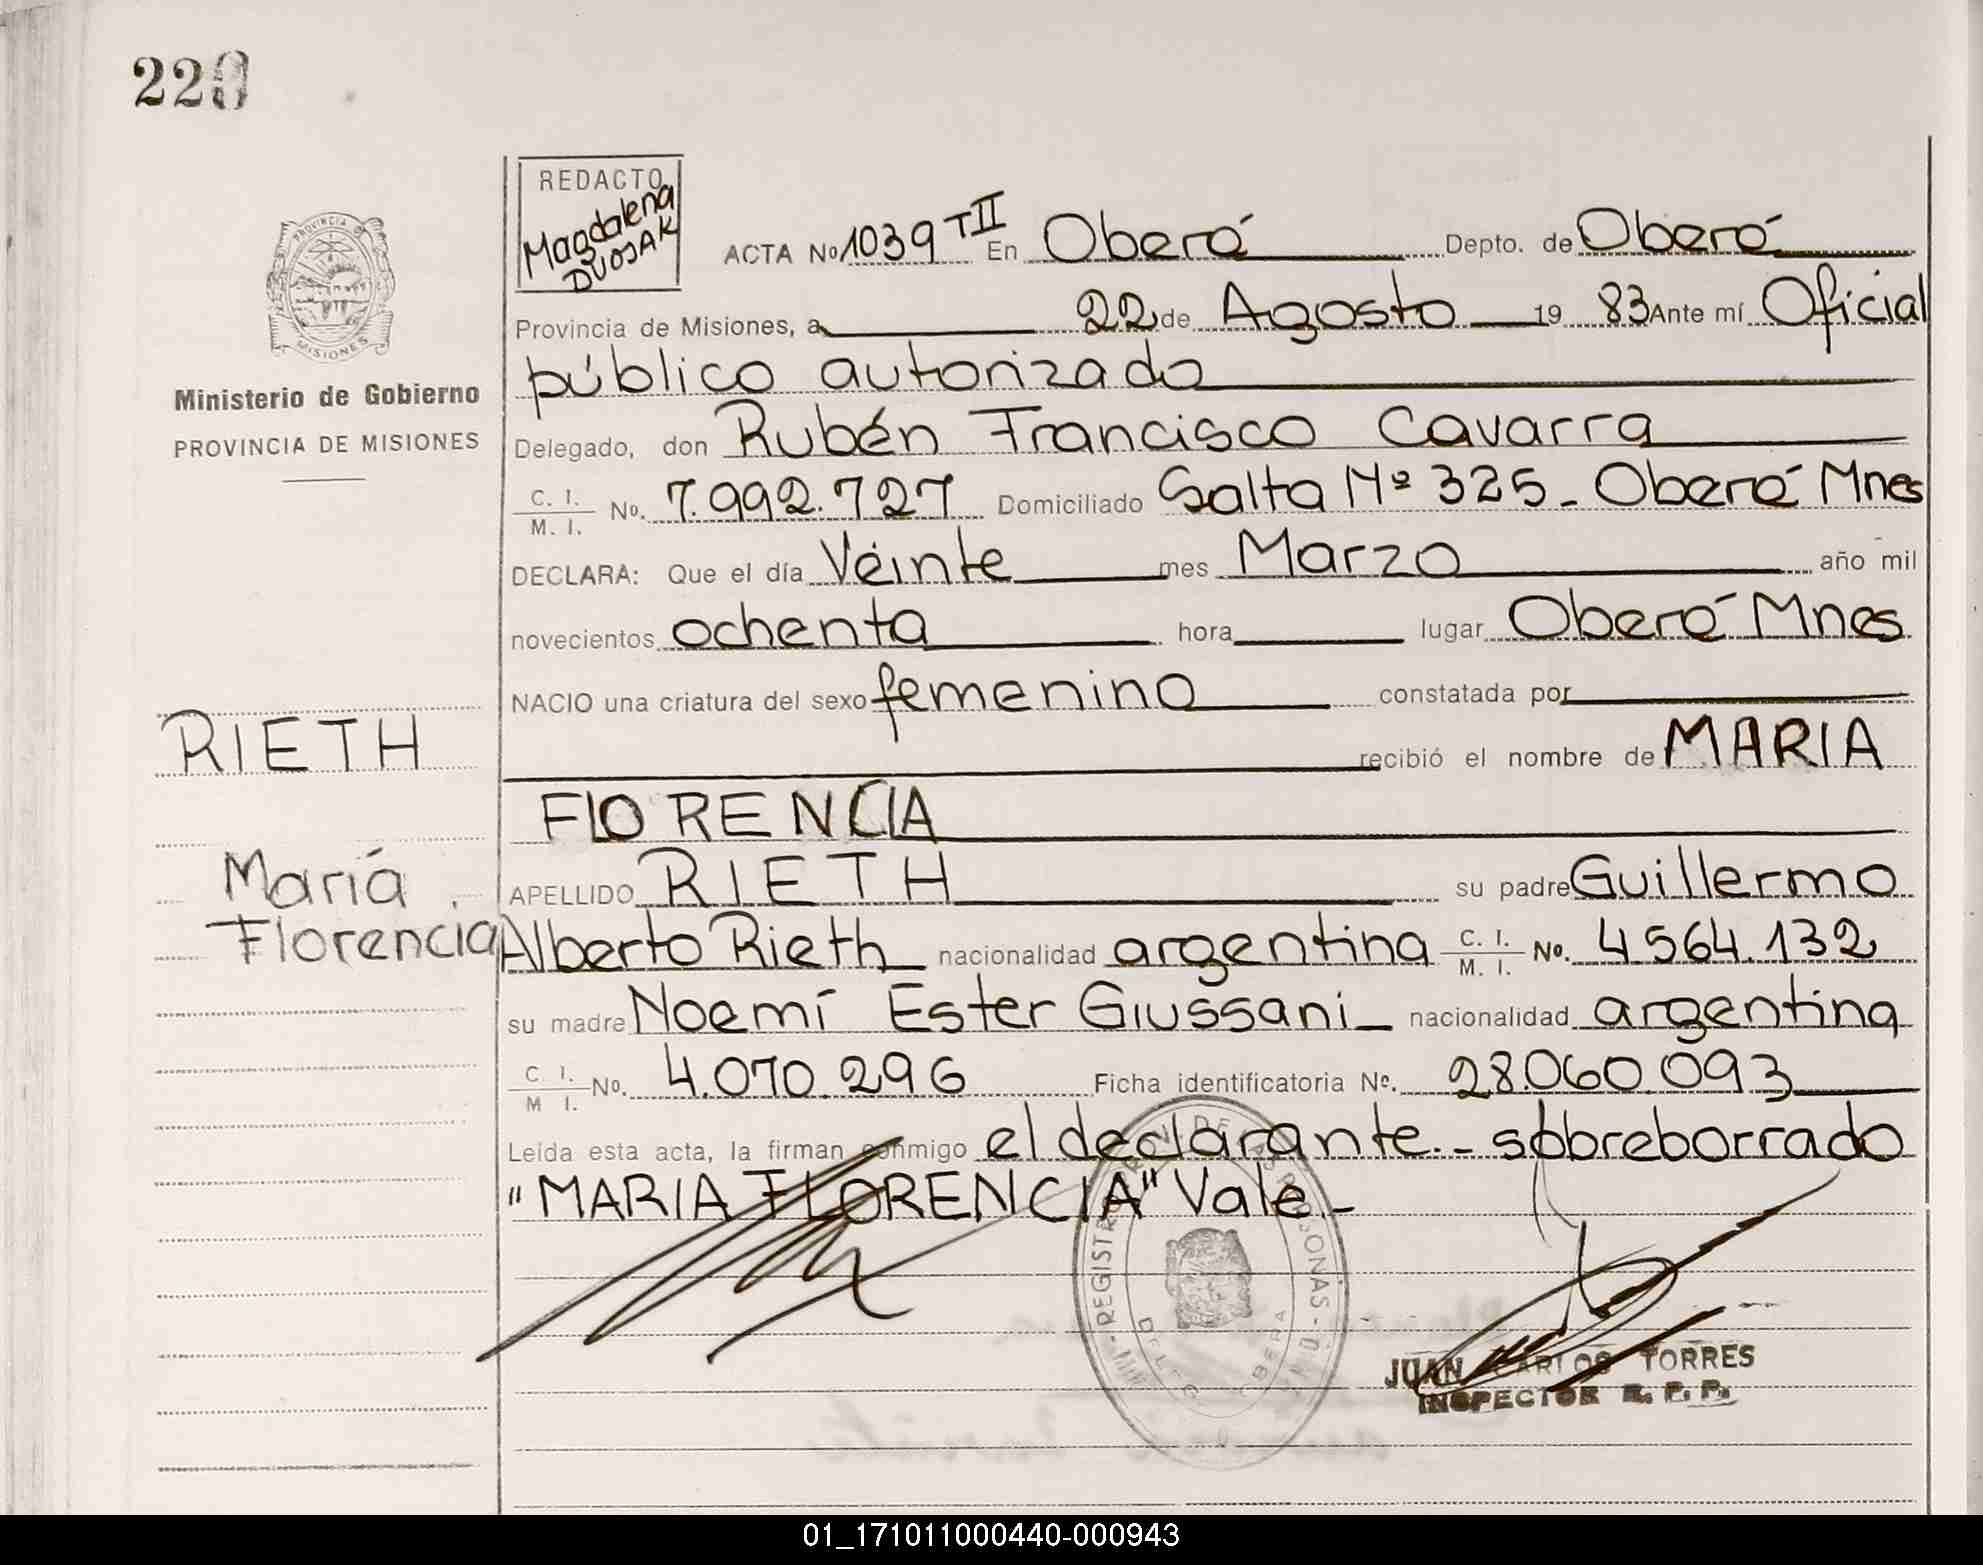 22
REDACTO
Magdalena
DUOJAK
ACTA No 1039 TII En Oberá Depto. de Oberá
Provincia de Misiones, a 22 de Agosto 19 83 Ante mí Oficial
público autorizado
Delegado, don Rubén Francisco Cavarra
C. I. M. I. No. 7.992.727 Domiciliado Salta Nº 325 - Oberá Mnes
DECLARA: Que el día Veinte mes Marzo año mil
novecientos ochenta hora lugar Oberá Mnes
NACIO una criatura del sexo femenino constatada por
recibió el nombre de MARIA
FLORENCIA
APELLIDO RIETH su padre Guillermo
Alberto Rieth nacionalidad argentina C. I. M. I. No. 4.564.132
su madre Noemí Ester Giussani nacionalidad argentina
C. I. M I. No. 4.070.296 Ficha identificatoria No. 28.060.093
Leída esta acta, la firman conmigo el declarante.- sobreborrado
"MARIA FLORENCIA" Vale.-
PROVINCIA DE
MISIONES
Ministerio de Gobierno
PROVINCIA DE MISIONES
RIETH
María
Florencia
JUAN CARLOS TORRES
INSPECTOR R. P. P.
01_171011000440-000943